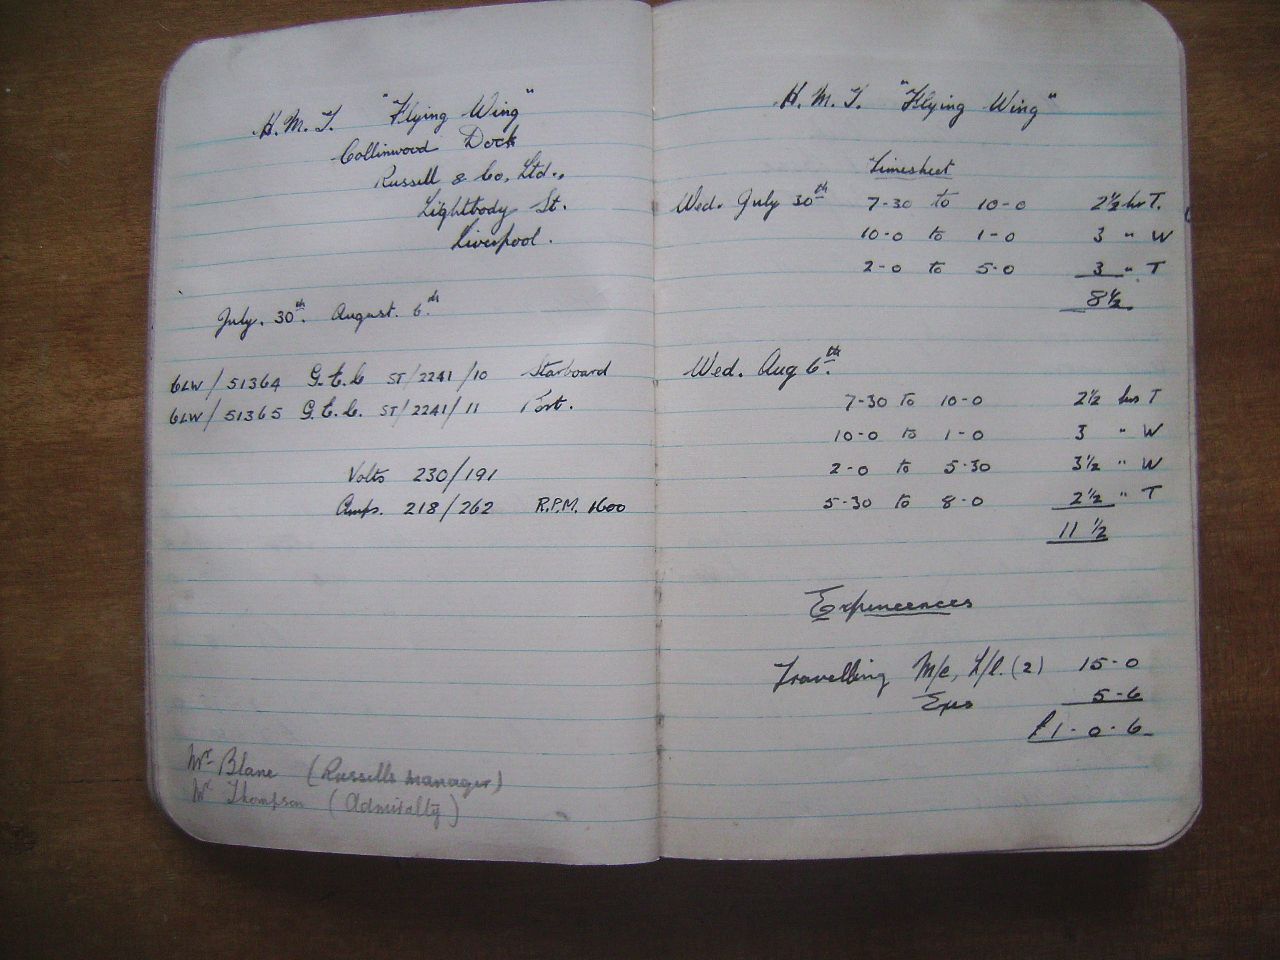 H. M. T. "Flying Wing"
Collinwood Dock
Russell & Co, Ltd.,
Lightbody St.
Liverpool.
July. 30th. August. 6th.
6LW/51364 G.E.C. ST/2241/10 Starboard
6LW/51365 G.E.C. ST/2241/11 Port.
Volts 230/191
Amps. 218/262 R.P.M. 1600
Mr Blane (Russells manager)
Mr Thompson (Admiralty)
H. M. T. "Flying Wing"
Timesheet
Wed. July 30th 7-30 to 10-0 2½ hrs T.
10-0 to 1-0 3 " W
2-0 to 5-0 3 " T
8½
Wed. Aug 6th.
7-30 to 10-0 2½ hrs T
10-0 to 1-0 3 " W
2-0 to 5-30 3½ " W
5-30 to 8-0 2½ " T
11½
Expinceences
Travelling M/c, L/l. (2) 15-0
Exps 5-6
£1-0-6